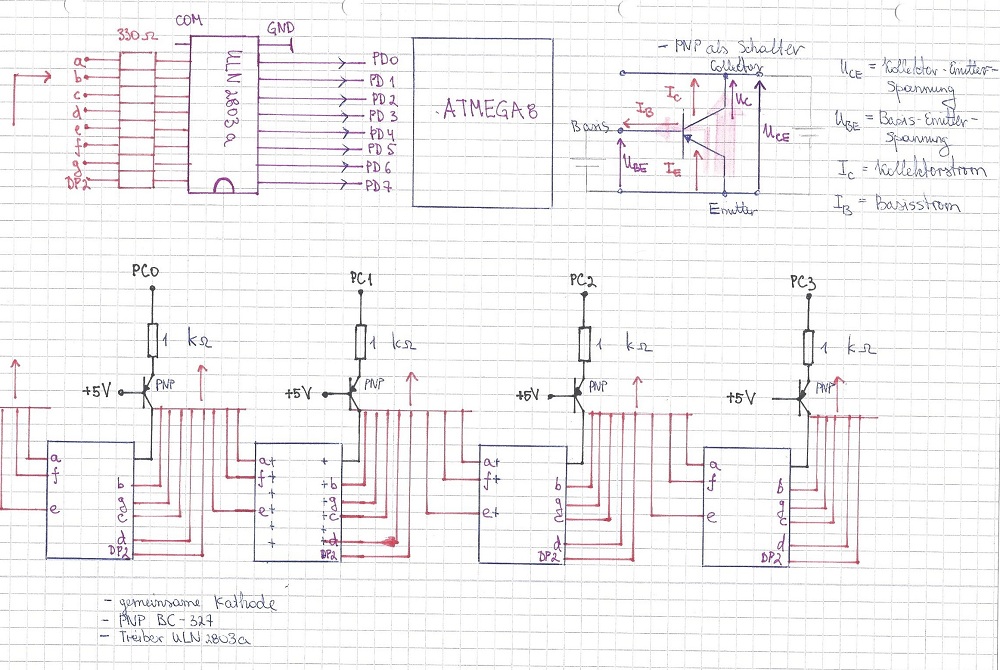 COM
GND
330Ω
a
b
c
d
e
f
g
DP2
ULN2803a
PD0
PD1
PD2
PD3
PD4
PD5
PD6
PD7
ATMEGA8
- PNP als Schalter
Collector
Basis
I_B
I_C
U_C
U_CE
U_BE
I_E
Emitter
U_CE = Kollektor-Emitter-
Spannung
U_BE = Basis-Emitter-
Spannung
I_C = Kollektorstrom
I_B = Basisstrom
PC0
1 kΩ
+5V
PNP
a
f
e
b
g
c
d
DP2
PC1
1 kΩ
+5V
PNP
a+
f+
e+
+
+
+
+b
+g
+c
+
+d
+DP2
PC2
1 kΩ
+5V
PNP
a+
f+
e+
b
g
c
d
DP2
PC3
1 kΩ
+5V
PNP
a
f
e
b
g
c
d
DP2
- gemeinsame Kathode
- PNP BC-327
- Treiber ULN2803a